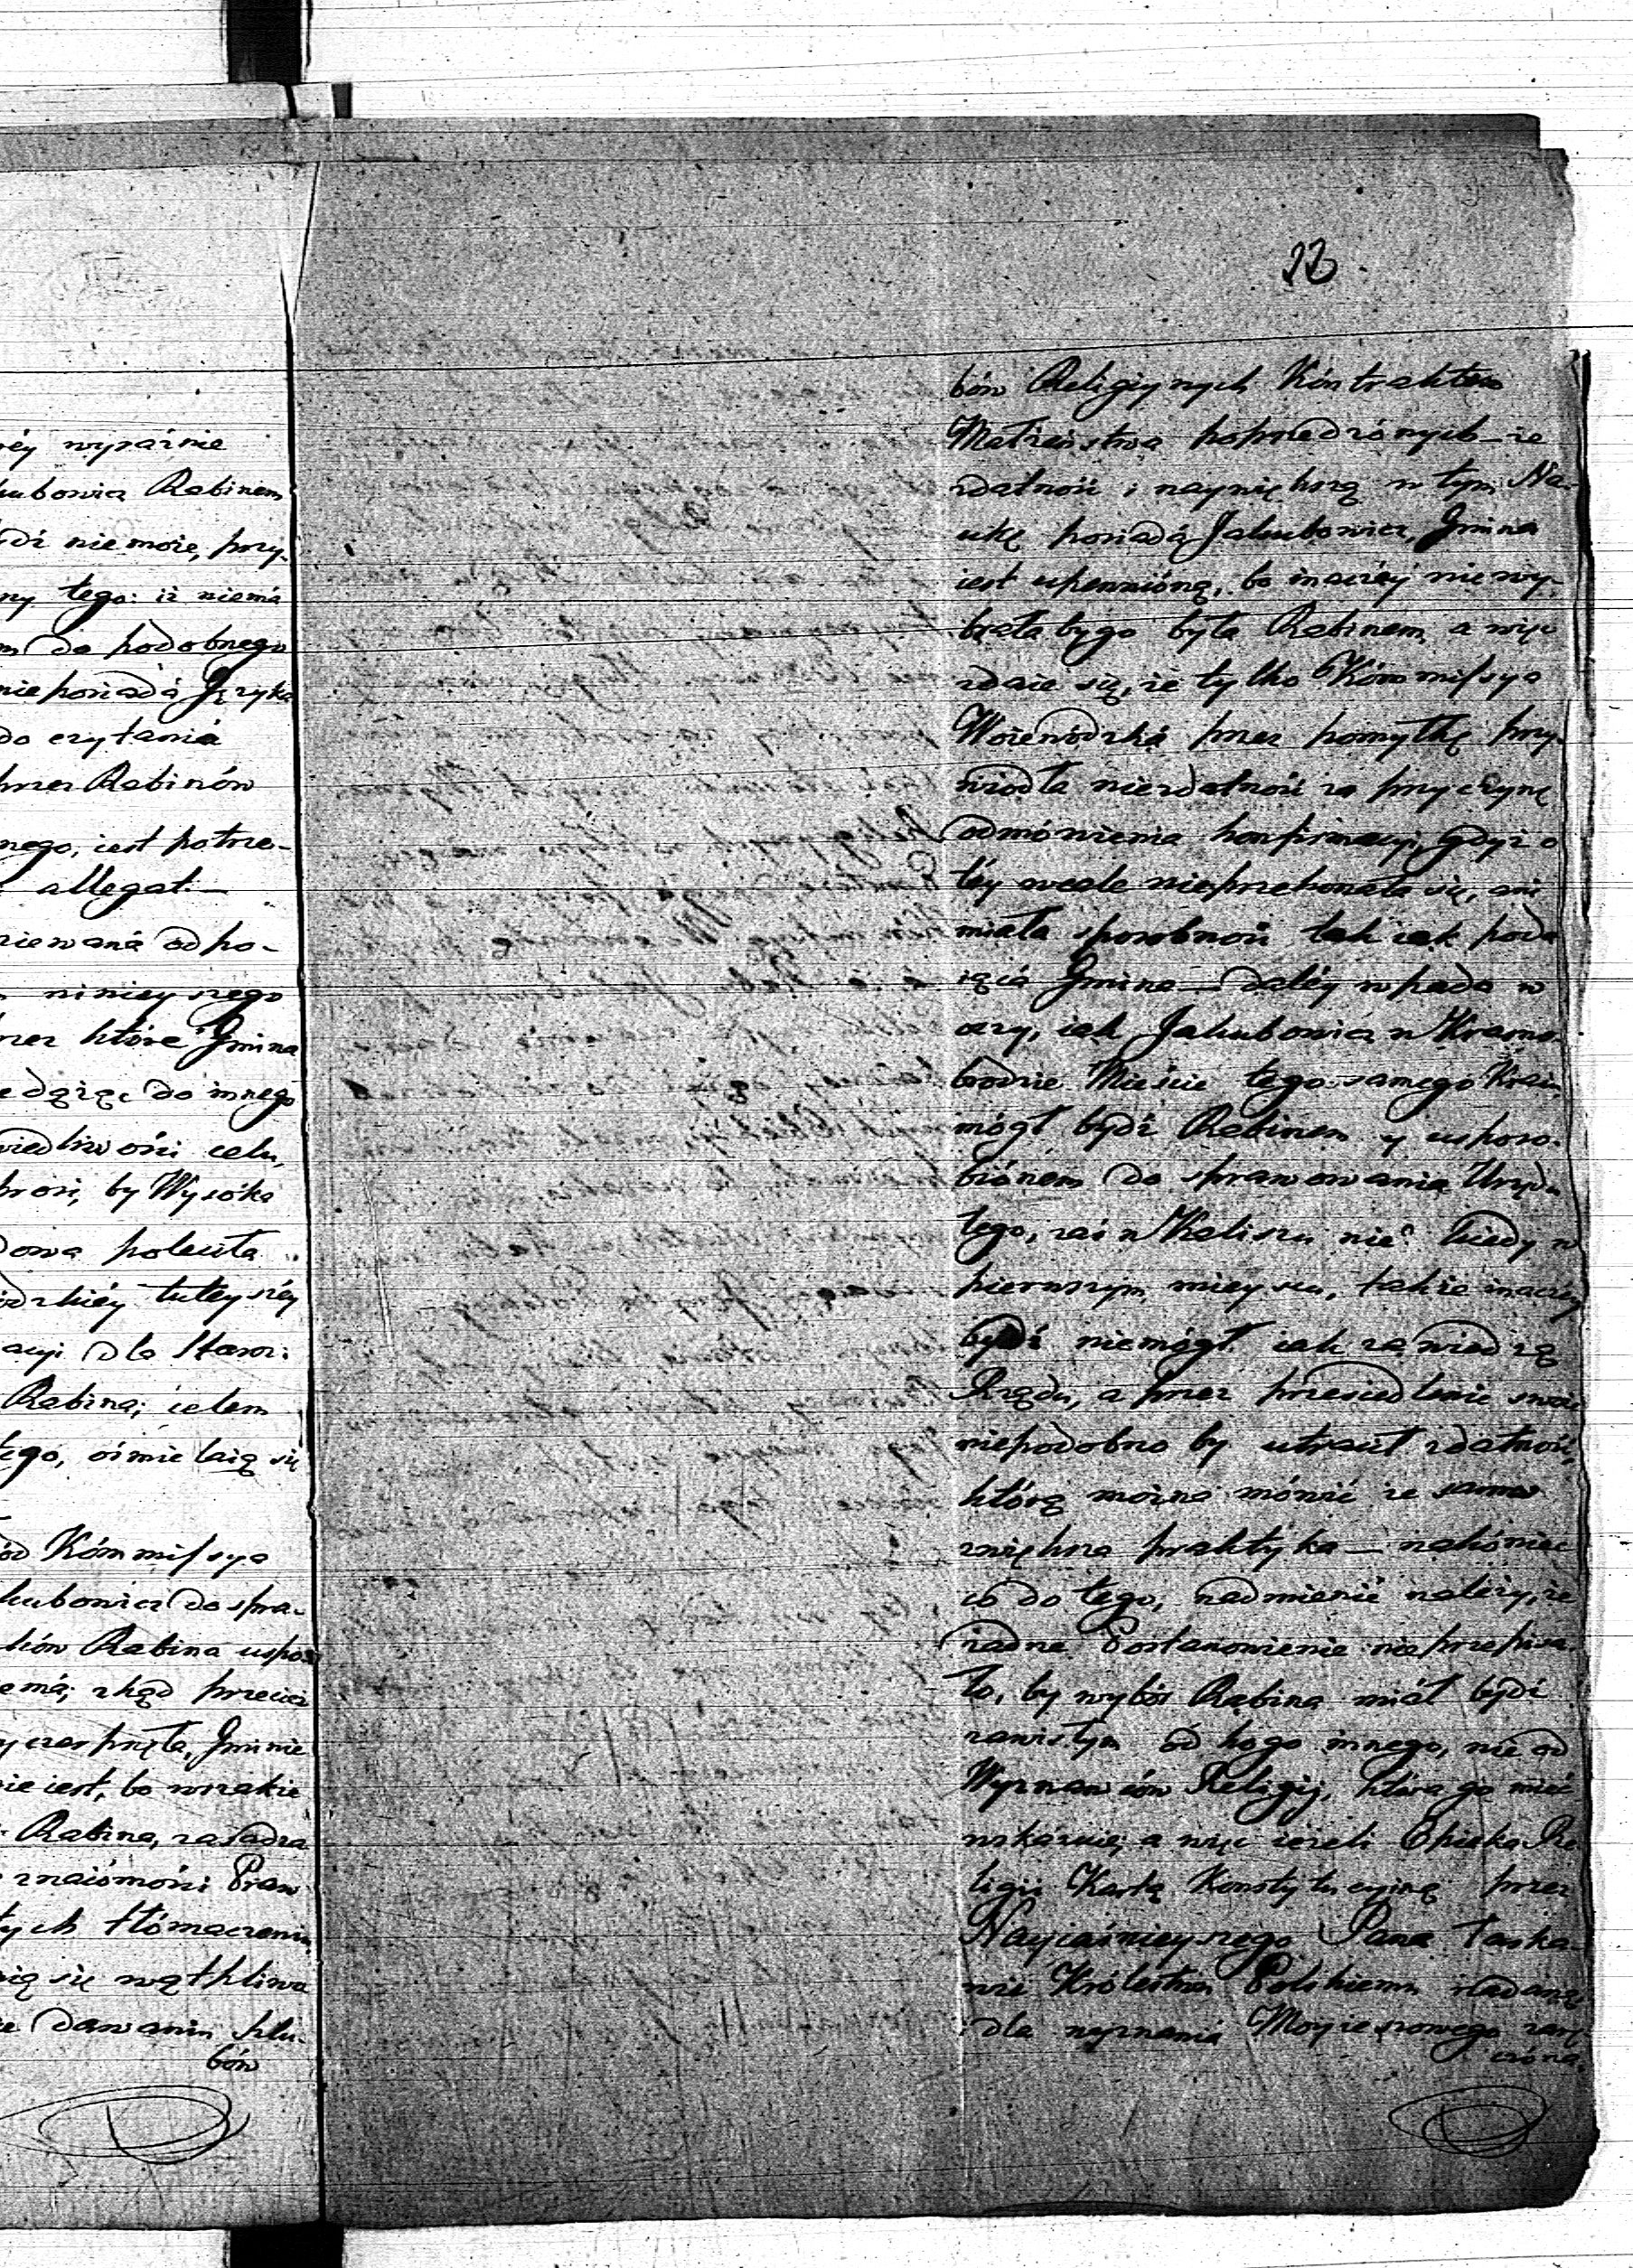 réy wyraźnie
kubowicz Rabinem
ydź niemoże, przy-
ny tego: iż niemá
m do podobnego
nie posiadá Języka
do czytaniá
przez Rabinów
nego, iest potrze-
allegat:
ziewaná od po-
niniéyszego
rzez któré Gmina
e dążąc do innego
wiedliwości celu,
prosi, by Wysoká
dowa poleciła
ódzkiéy tuteyszéy
acyi dla Staroz:
Rabina; celem
tego, ośmielaią się
ód Kómmissya
kubowicz do spra-
ków Rabina uspo
emá; zkąd przecież
yczerpnęła, Gminie
nie iest, bo wszakże
Rabina, zasadza
znaiómości Praw
tych tłómaczeniu
nią się wątpliwe
że dawaniu szlu-
bów
22
bów Religiynych Kóntraktem
Małżeństwa poprzedzónych – że
zdatność i naywiększą w tym Na-
ukę posiadá Jakubowicz, Gmina
iest upewnióną, bo inaczéy nie wy-
brała bygo była Rabinem, a więc
zdaie się, że tylko Kómmissya
Woiewódzká przez pomyłkę przy-
wiodła niezdatność za przyczynę
odmówienia konfirmacyi, gdyż o
téy wcale nieprzekonała się, ani
miała sposobność tak iak poda
iąca Gmina – daléy wpada w
oczy, iak Jakubowicz w Krasno-
brodzie Mieście tego samego Kraiu
mógł bydź Rabinem y usposo-
biónem do sprawowania Urzędu
tego, zaś w Kaliszu nie? kiedy w
pierwszym mieyscu, także inaczéy
bydź niemógł iak za wiedzą
Rządu, a przez przesiedlenie swoie
niepodobno by utracił zdatność,
którą można mówić że sama
zwiększa praktyka – nakóniec
co do tego, nadmienić należy, że
żadne Postanowienie nieprzepisa
to, by wybór Rabina miał bydź
zawisłym ód kogo innego, nie od
Wyznawców Religij, która go mieć
wskázuie; a więc ieżeli Opieka Re
ligii Kartą Konstytucyiną przez
Nayiaśnieyszego Pana łaska-
wie Królestwu Polskiemu nadaną
i dla wyznania Moyżeszowego zarę-
czóna